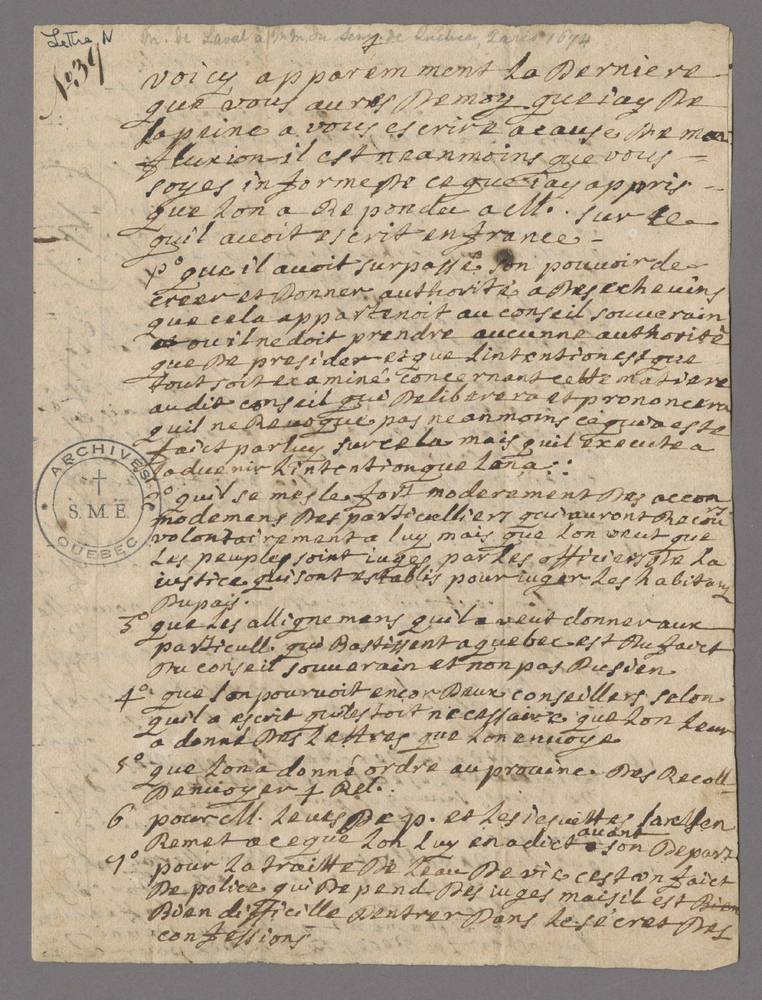 Lettre N
No. 39
M. de Laval à MM. du Sem. de Québec, Paris 1674
voicy apparemment La Derniere
que vous aures De moy que iay De
la peine a vous escrire a cause De ma
fluxion il est neanmoins que vous
soyes informe De ce que iay appris
que Lon a Repondu a M. sur ce
quil avoit escrit en france
1° que il avoit surpassé son pouvoir de
creer et Donner authorité a Des echevins
que cela appartenoit au conseil souverain
ou il ne doit prendre aucunne authorité
que De presider et que Lintention est que
tout soit examiné concernant cette matiere
au dit conseil qui Deliberera et prononcera
quil ne Revoque pas neanmoins ce qui a este
faict par luy sur cela mais quil execute a
Ladvenir Lintention que Lon a :
2° quil se mesle fort moderement Des accom
modemens Des particulliers qui auront Recours
volontairement a luy mais que Lon veut que
Les peuples soint iuges par Les officiers De La
iustice qui sont establis pour iuger Les habitans
Du pais.
3° que Les allignemens quil a veut donner aux
particull. qui Bastissent a quebec est Du faict
Du conseil souverain et non pas Du sien
4° que Lon pourvoit encor Deux conseillers selon
quil a escrit quil estoit necessaire que Lon Leur
a donné Des Lettres que Lon envoye
5° que Lon a donné ordre au provinc. Des Recoll
Denvoyer 4 Rel.
6 pour M. Leves De p. et Les iesuittes
Remet a ce que Lon Luy en a dict avant son Depart
7° pour La traitte De Leau De vie cest un faict
De police qui Depend Des iuges mais il est Bien
Bien difficille Dentrer Dans Le secret Des
confessions
ARCHIVES
S.M.E.
QUEBEC